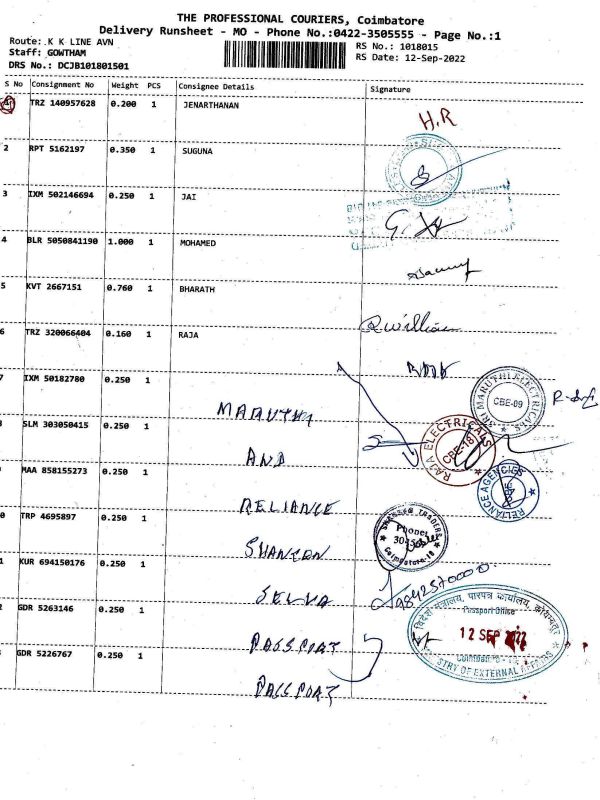 THE PROFESSIONAL COURIERS, Coimbatore
Delivery Runsheet - MO - Phone No.:0422-3505555 - Page No.:1
Route: K K LINE AVN
Staff: GOWTHAM
DRS No.: DCJB101801501
RS No.: 1018015
RS Date: 12-Sep-2022
S No Consignment No Weight PCS Consignee Details Signature
TRZ 140957628 0.200 1 JENARTHANAN H.R
2 RPT 5162197 0.350 1 SUGUNA
3 IXM 502146694 0.250 1 JAI
4 BLR 5050841190 1.000 1 MOHAMED
5 KVT 2667151 0.760 1 BHARATH R william
6 TRZ 320066404 0.160 1 RAJA
7 IXM 50182780 0.250 1 MARUTHI
SRI MARUTHI ELECTRICALS CBE-09
SLM 303050415 0.250 1 AND
RAJA ELECTRICALS CBE-18
MAA 858155273 0.250 1 RELIANCE
RELIANCE AGENCIES
0 TRP 4695897 0.250 1 SHANTEN
TRADERS
Phone:
Coimbatore-18
1 KUR 694150176 0.250 1 SELVA
9842570000
2 GDR 5263146 0.250 1 PASSPORT
विदेश मंत्रालय, पारपत्र कार्यालय, कोयम्बतूर
Passport Office
12 SEP 2022
Coimbatore
STRY OF EXTERNAL AFFAIRS
GDR 5226767 0.250 1 PASSPORT